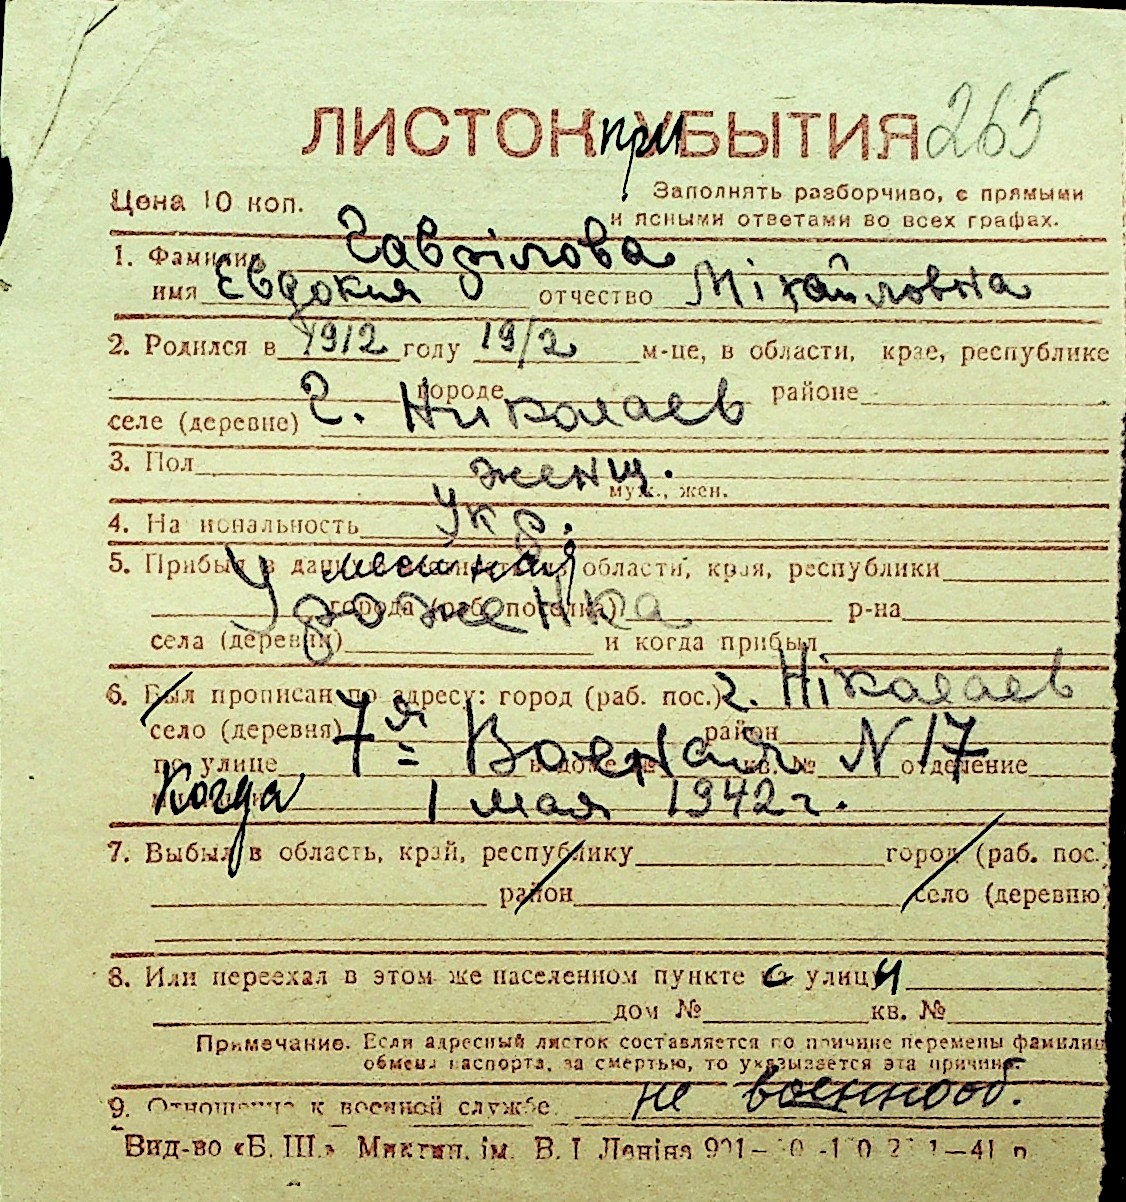 ЛИСТОК при УБЫТИЯ 265
Цена 10 коп.
Заполнять разборчиво, с прямыми
и ясными ответами во всех графах.
1. Фамилия Гаврілова
имя Евдокия отчество Міхайловна
2. Родился в 1912 году 19/2 м-це, в области, крае, республике
городе районе
селе (деревне) г. Николаев
3. Пол женщ.
муж., жен.
4. Национальность Укр.
5. Прибыл в данную местность из области, края, республики
местная
города (раб. поселка) р-на
Уроженка
села (деревни) и когда прибыл
6. Был прописан по адресу: город (раб. пос.) г. Ніколаев
село (деревня) район
по улице 7я Военая в доме № кв. № N 17 отделение
Когда 1 мая 1942 г.
7. Выбыл в область, край, республику город (раб. пос.)
район село (деревню)
8. Или переехал в этом же населенном пункте с улицы
дом № кв. №
Примечание. Если адресный листок составляется по причине перемены фамилии
обмена паспорта, за смертью, то указывается эта причина.
9. Отношение к военной службе не военнооб.
Вид-во «Б. Ш.» Миктип. ім. В. І Леніна